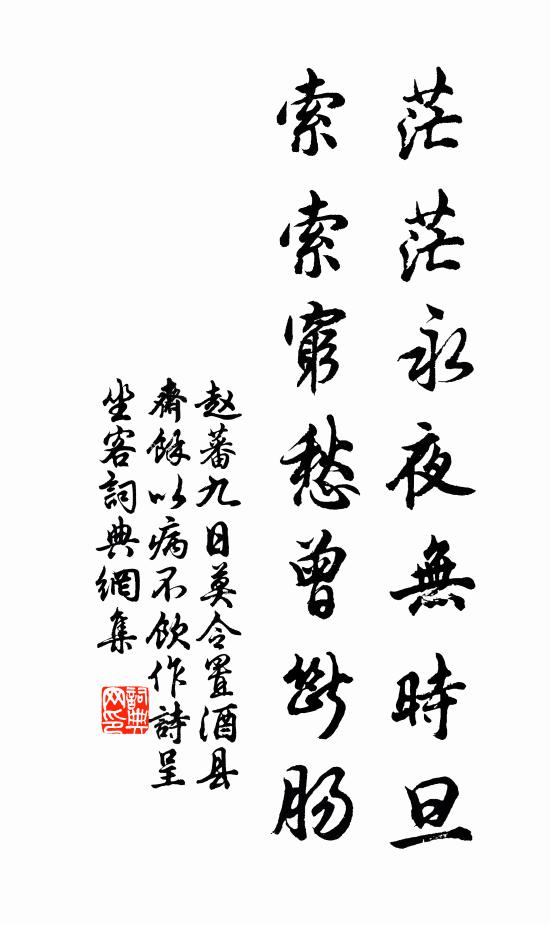 茫茫永夜無時旦
索索窮愁曾斷肠
赵蕃九日莫令置酒县
齋餘以病不飲作詩呈
坐客詞典網集
詞典網印